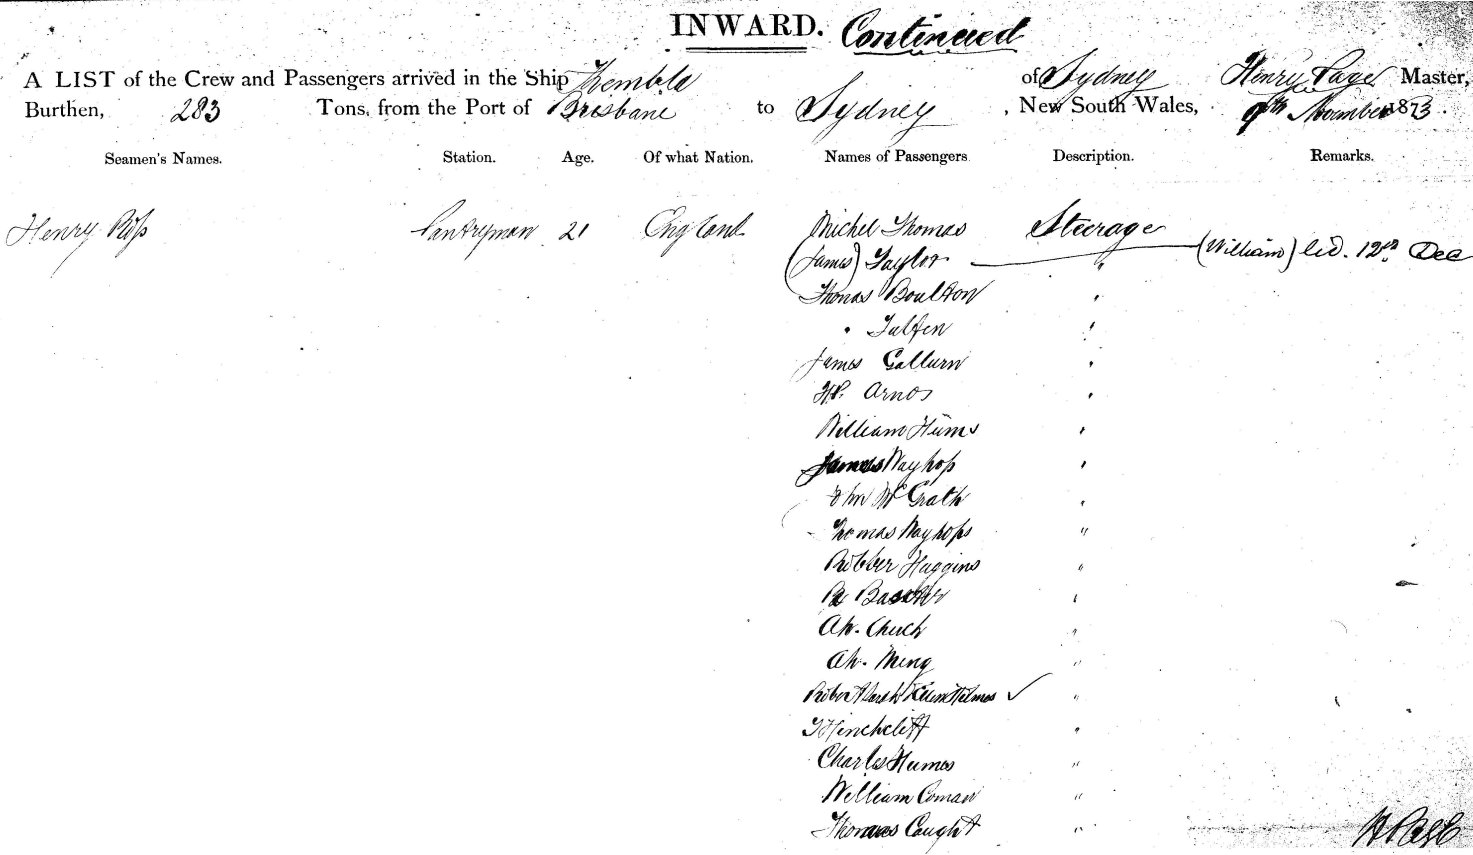 INWARD. Continued
A LIST of the Crew and Passengers arrived in the Ship Kembla of Sydney Henry Page Master,
Burthen, 283 Tons, from the Port of Brisbane to Sydney , New South Wales, 9th November 1873.
Seamen's Names. Station. Age. Of what Nation. Names of Passengers Description. Remarks.
Henry Ross Pantryman 21 England Michel Thomas Steerage
(James) Taylor " (William) lid. 12th Dec
Thomas Boulton "
" "
James "
H.P. Arnos "
William Hums "
James Wayhop "
John McGrath "
Thomas Wayhops "
Huggins "
"
Ah. Chuch "
Ah. Ming "
Robert Sarah Holmes ✓ "
T Hinchcliff "
Charles Humes "
William Coman "
Thomas Caught "
H Page